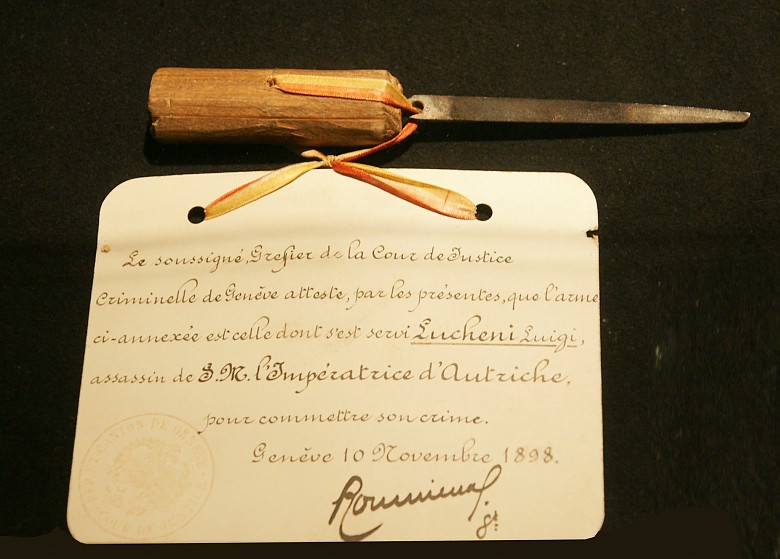 Le soussigné, Grefier de la Cour de Justice
Criminelle de Genêve atteste, par les présentes, que l'arme
ci-annexée est celle dont s'est servi Lucheni Luigi,
assassin de S. M. l'Impératrice d'Autriche,
pour commettre son crime.
Genêve 10 Novembre 1898.
CANTON DE
COUR DE